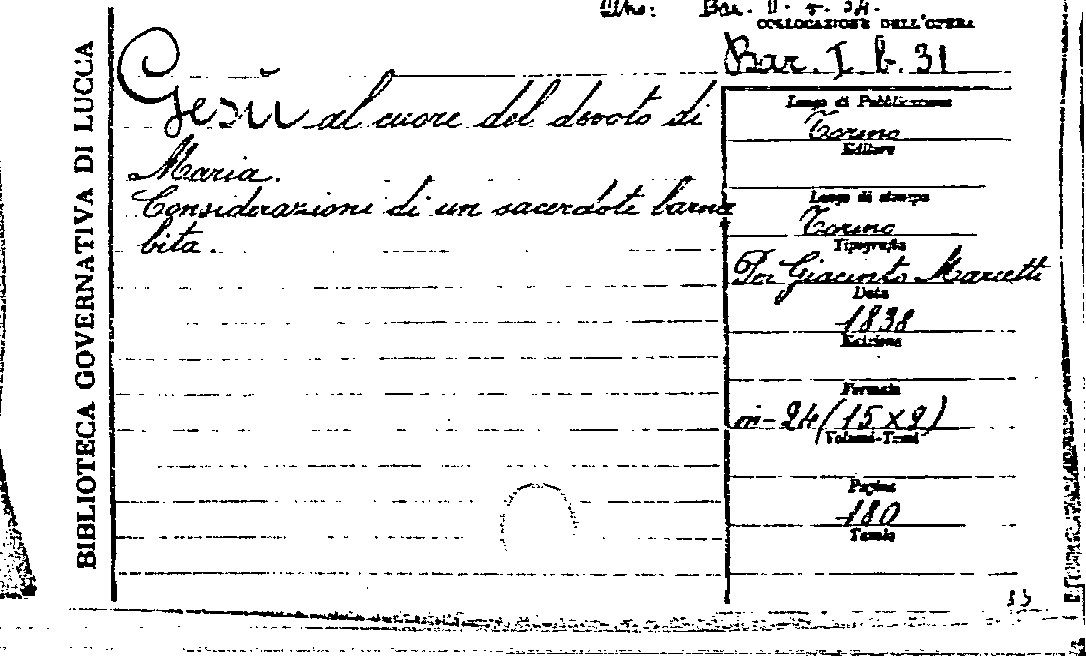 BIBLIOTECA GOVERNATIVA DI LUCCA
COLLOCAZIONE DELL'OPERA
Bar. I. b. 31
Gesù al cuore del devoto di
Maria.
Considerazioni di un sacerdote barna
bita.
Luogo di Pubblicazione
Torino
Editore
Luogo di stampa
Torino
Tipografia
Per Giacinto Marietti
Data
1838
Edizione
Formato
in-24 (15 x 9)
Volumi-Tomi
Pagine
180
Tavole